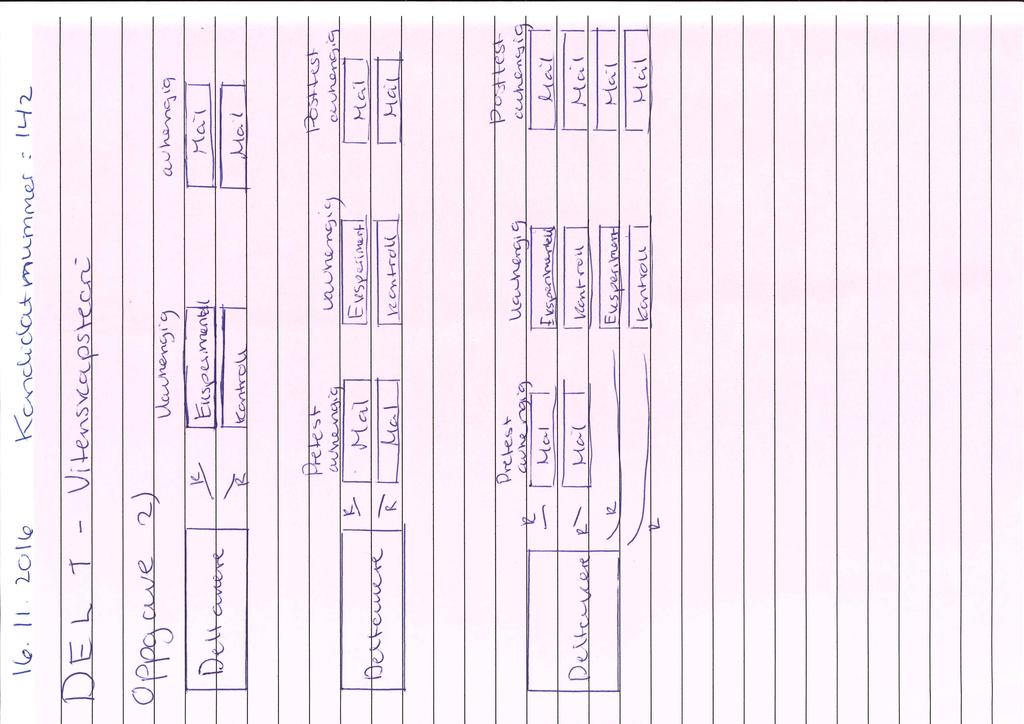 16.11.2016 Kandidatnummer: 142
DEL I - Vitenskapsteori
Oppgave 2)
Uavhengig avhengig
Deltakere R Eksperimentell Mål
R Kontroll Mål
Pretest Posttest
avhengig Uavhengig avhengig
Deltakere R Mål Eksperiment Mål
R Mål Kontroll Mål
Pretest Posttest
avhengig Uavhengig avhengig
R Mål Eksperimentell Mål
Deltakere R Mål Kontroll Mål
R Eksperiment Mål
R Kontroll Mål